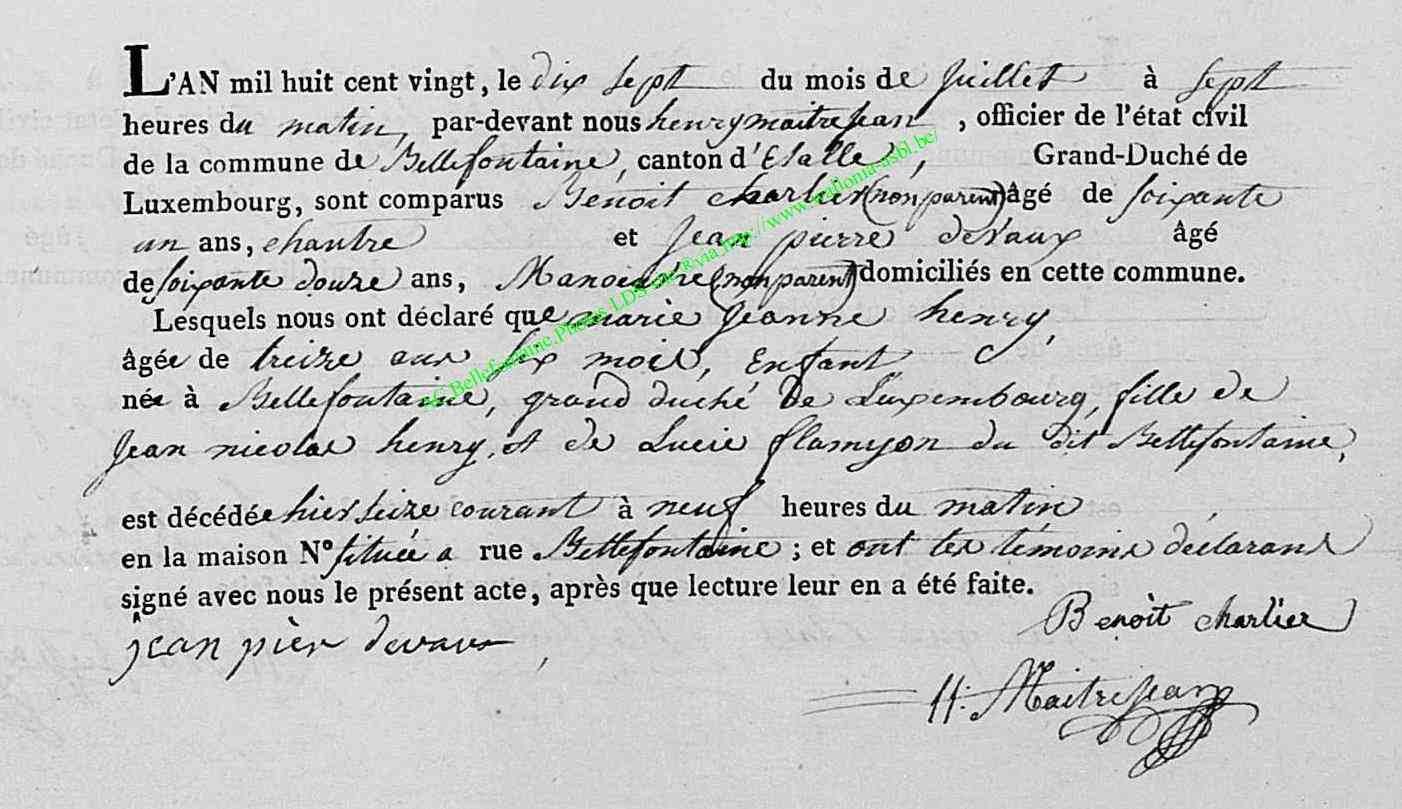 L'AN mil huit cent vingt, le dix sept du mois de juillet à sept
heures du matin, par-devant nous henry maitrejean, officier de l'état civil
de la commune de Bellefontaine, canton d'Etalle, Grand-Duché de
Luxembourg, sont comparus Benoit charlier (non parent) âgé de soixante
un ans, chantre et jean pierre devaux âgé
de soixante douze ans, Manoeuvre (non parent) domiciliés en cette commune.
Lesquels nous ont déclaré que marie jeanne henry,
âgée de treize ans six mois, Enfant
née à Bellefontaine, grand duché de Luxembourg, fille de
jean nicolas henry, et de Lucie flamyon du dit Bellefontaine,
est décédée hier seize courant à neuf heures du matin
en la maison N° située a rue Bellefontaine ; et ont les témoins déclarans
signé avec nous le présent acte, après que lecture leur en a été faite.
Benoît charlier
jean pier devaux
H: Maitrejean
Bellefontaine, Photos LDS http://www.wallonia-asbl.be/